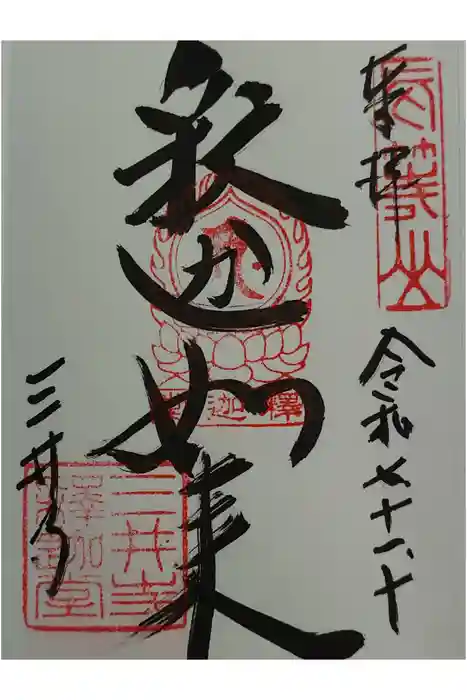 奉拝
長等山
令和七十一、十
釈迦如来
釋迦
三井寺
三井寺
釋迦堂